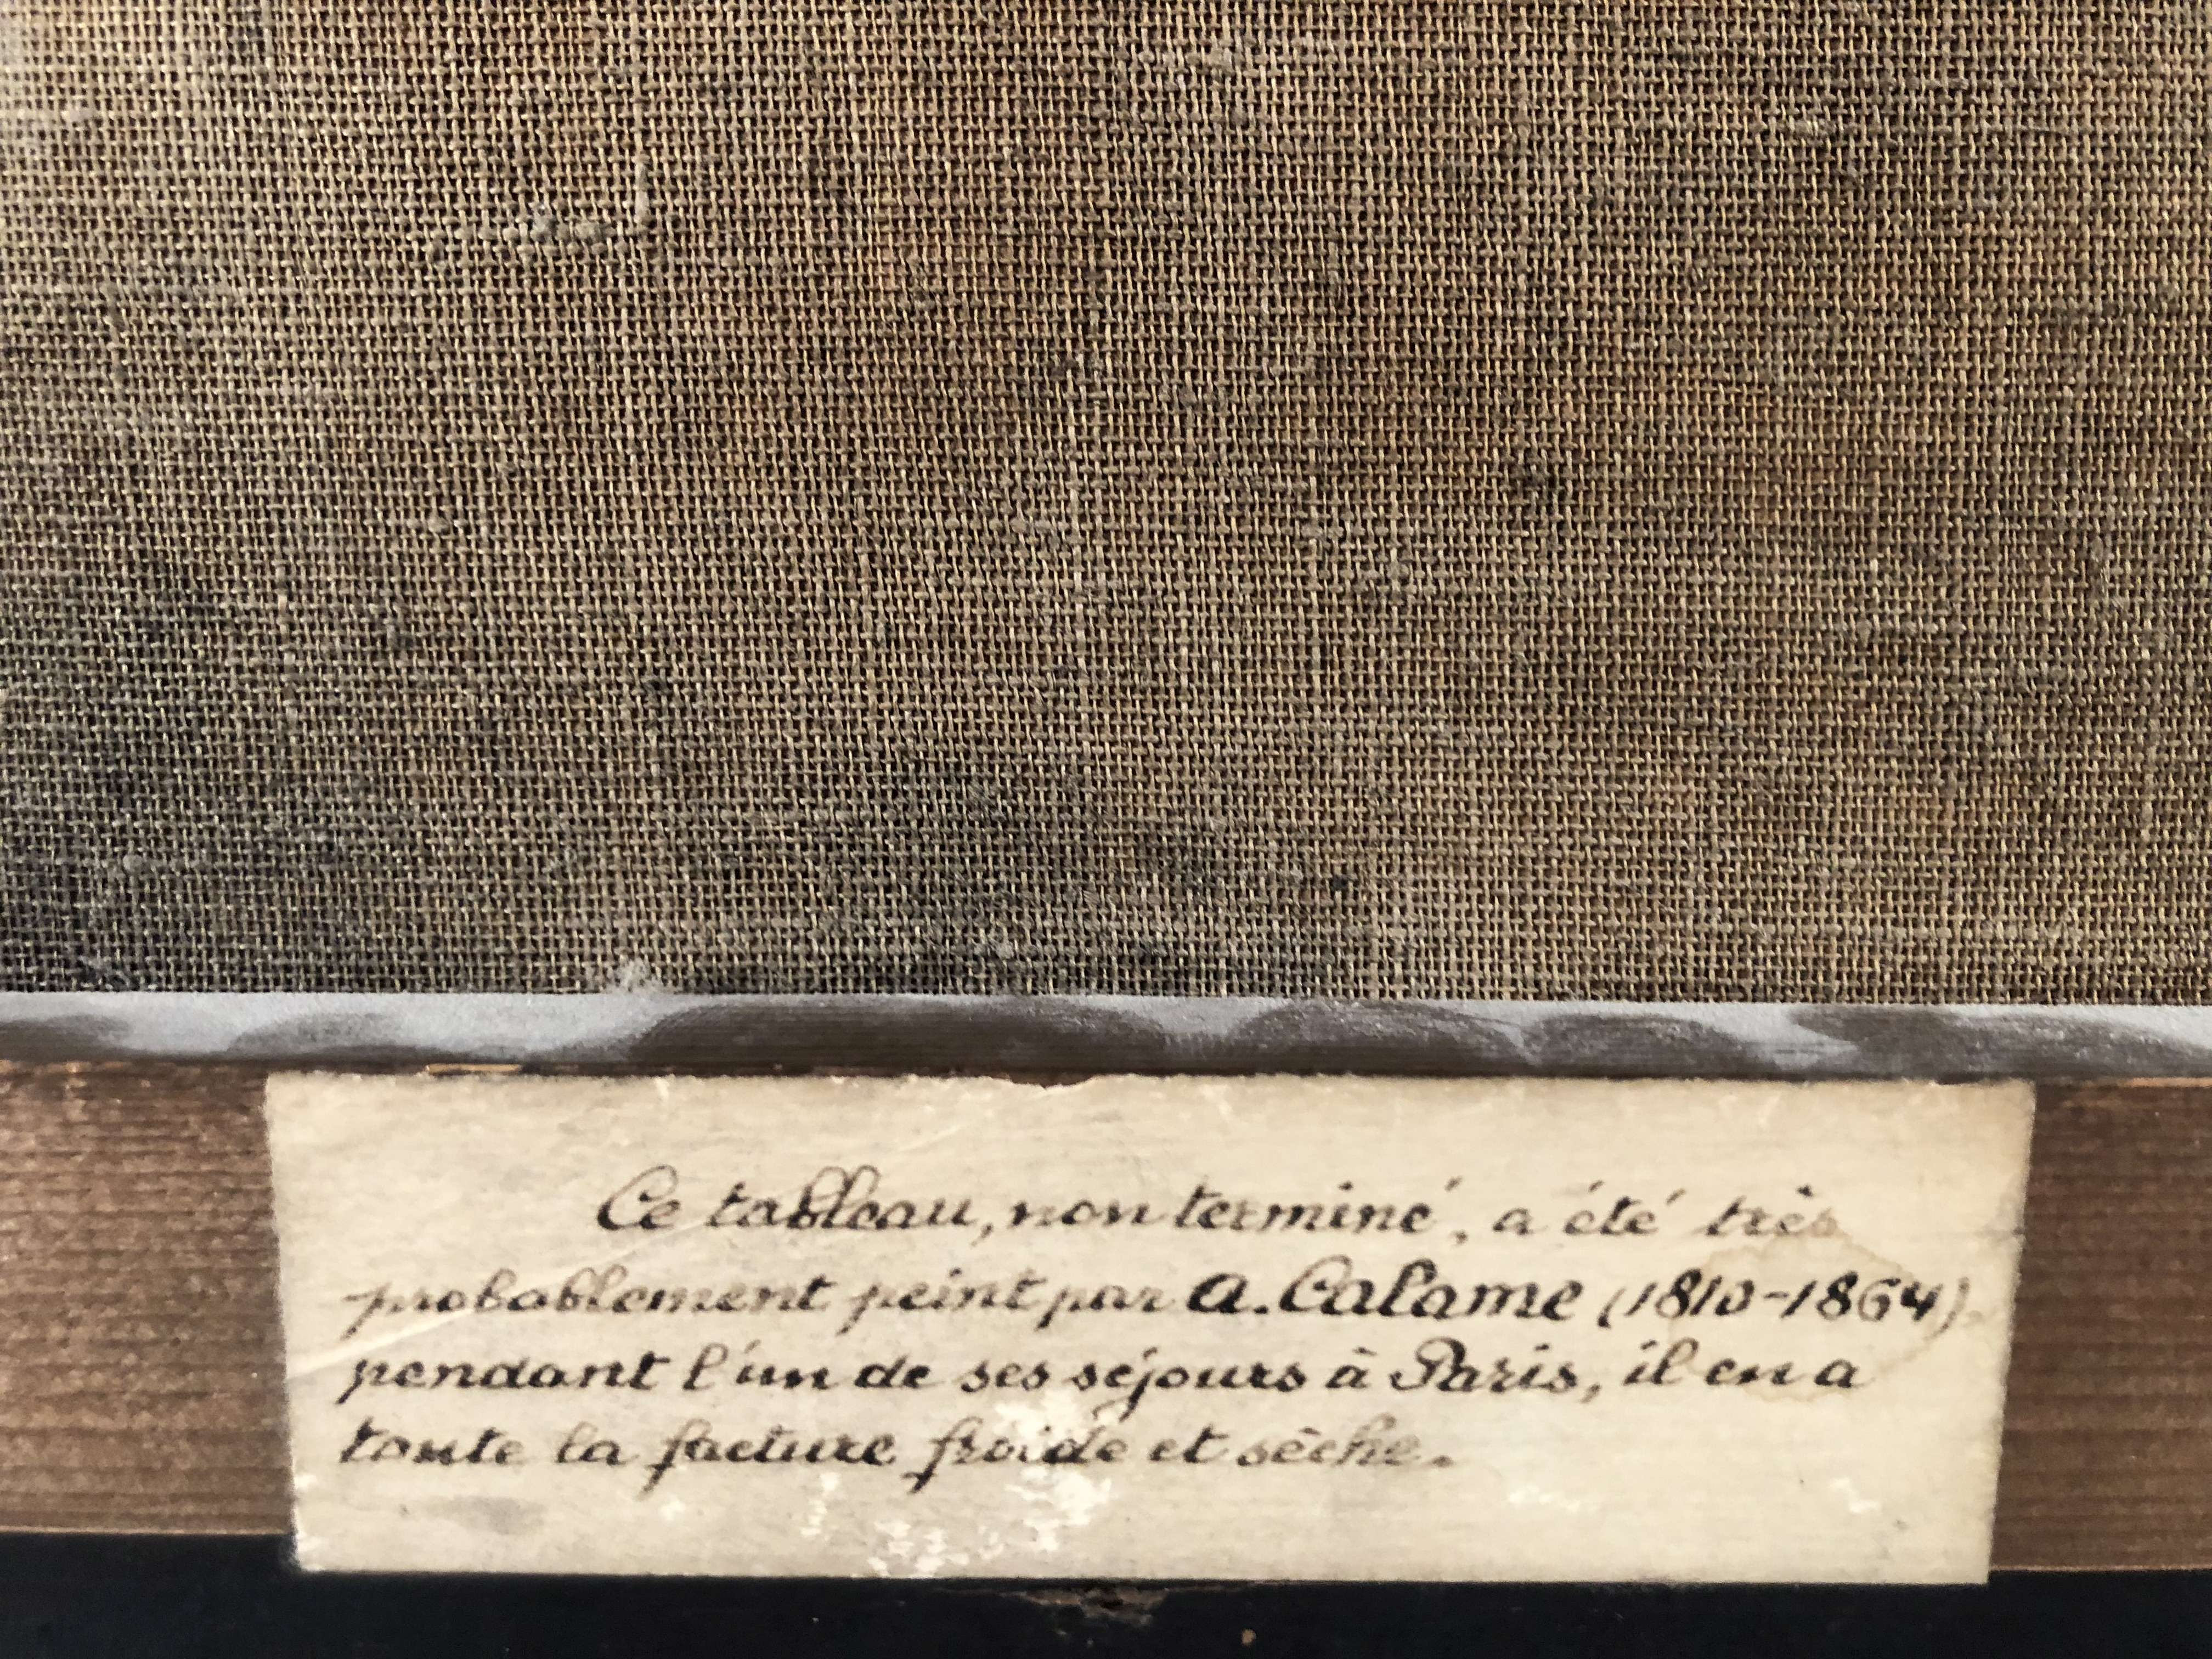 Ce tableau, non terminé, a été très
probablement peint par A. Calame (1810-1864)
pendant l'un de ses séjours à Paris, il en a
toute la facture froide et sèche.